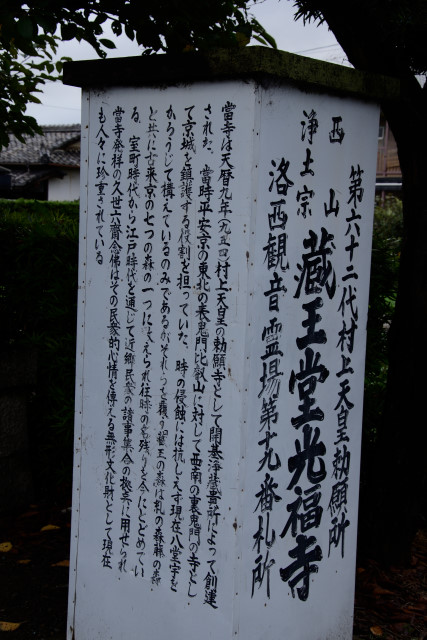 第六十二代村上天皇勅願所
西山
浄土宗
蔵王堂光福寺
洛西観音霊場第十九番札所
當寺は天暦九年(九五五)村上天皇の勅願寺として開基浄蔵貴所によって創建
された。當時平安京の東北の表鬼門比叡山に対して西南の裏鬼門の寺とし
て京城を鎮護する役割を担っていた。時の侵蝕には抗しえず現在八堂宇を
かろうじて構えているのみであるがそれらを覆う蔵王の森は糺の森藤の森
と共に古来京の七つの森の一つに数えられ往時の名残りを今にとどめてい
る。室町時代から江戸時代を通じて近郷民衆の諸事集会の拠点に用せられ
當寺発祥の久世六齋念佛はその民衆的心情を傳える無形文化財として現在
も人々に珍重されている